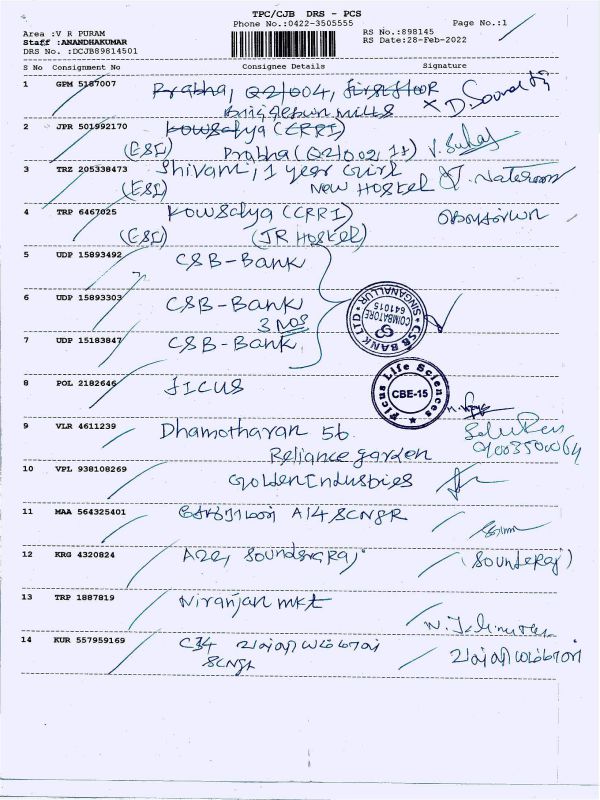 TPC/CJB DRS - PCS
Phone No.:0422-3505555
Page No.:1
Area :V R PURAM
Staff :ANANDHAKUMAR
DRS No. :DCJB89814501
RS No.:898145
RS Date:28-Feb-2022
S No Consignment No Consignee Details Signature
1 GPM 5187007 Prabha, Q2/004, first floor
mills
2 JPR 501992170 Kowsalya (CRRI)
(ESI) Prabha (
3 TRZ 205338473 Shivani, 1 year Girl
(ESI) New Hostel
4 TRP 6467025 Kowsalya (CRRI)
(ESI) (JR Hostel)
5 UDP 15893492 CSB-Bank
6 UDP 15893303 CSB-Bank
3 NOS
CSB BANK LTD SINGANALLUR
COIMBATORE
641015
7 UDP 15183847 CSB-Bank
8 POL 2182646 FICUS
Ficus Life Sciences
CBE-15
9 VLR 4611239 Dhamotharan 56
Reliance garden
10 VPL 938108269 Golden Industries
11 MAA 564325401 A14 SCNGR
12 KRG 4320824 A22, Soundaraj
(Sounderaj)
13 TRP 1887819 Niranjan mkt
14 KUR 557959169 C34
SCNGR